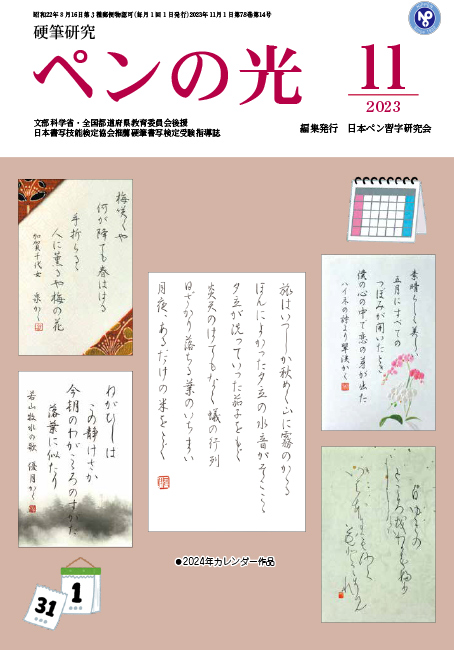 昭和22年8月16日第3種郵便物認可(毎月1回1日発行)2023年11月1日第78巻第14号
硬筆研究
ペンの光
11
2023
文部科学省・全国都道府県教育委員会後援
日本書写技能検定協会推薦硬筆書写検定受験指導誌
編集発行 日本ペン習字研究会
梅咲くや
何が降ても春ははる
手折らるゝ
人に薫るや梅の花
加賀千代女
素晴らしく美しい
五月にすべての
つぼみが開いたとき
僕の心の中で恋の芽が出た
ハイネの詩より 翠渓かく
旅はいつしか秋めく山に霧のかゝる
ほんによかつた夕立の水音がそこここ
夕立が洗つていつた茄子をもぐ
炎天のはてもなく蟻の行列
日ざかり落ちる葉のいちまい
月夜、あるだけの米をとぐ
わがこひは
この静けさか
今朝のわがこころのすがた
落葉に似たり
若山牧水の歌 優月かく
●2024年カレンダー作品
31
1